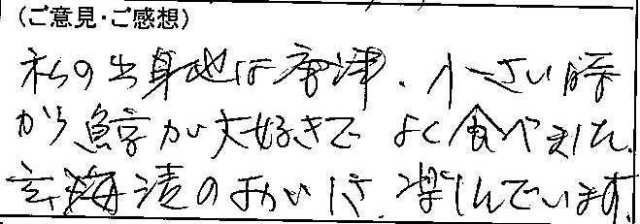 (ご意見・ご感想)
私の出身地は唐津、小さい時
から鯨が大好きで よく食べました。
玄海漬のおかげで 楽しんでいます。